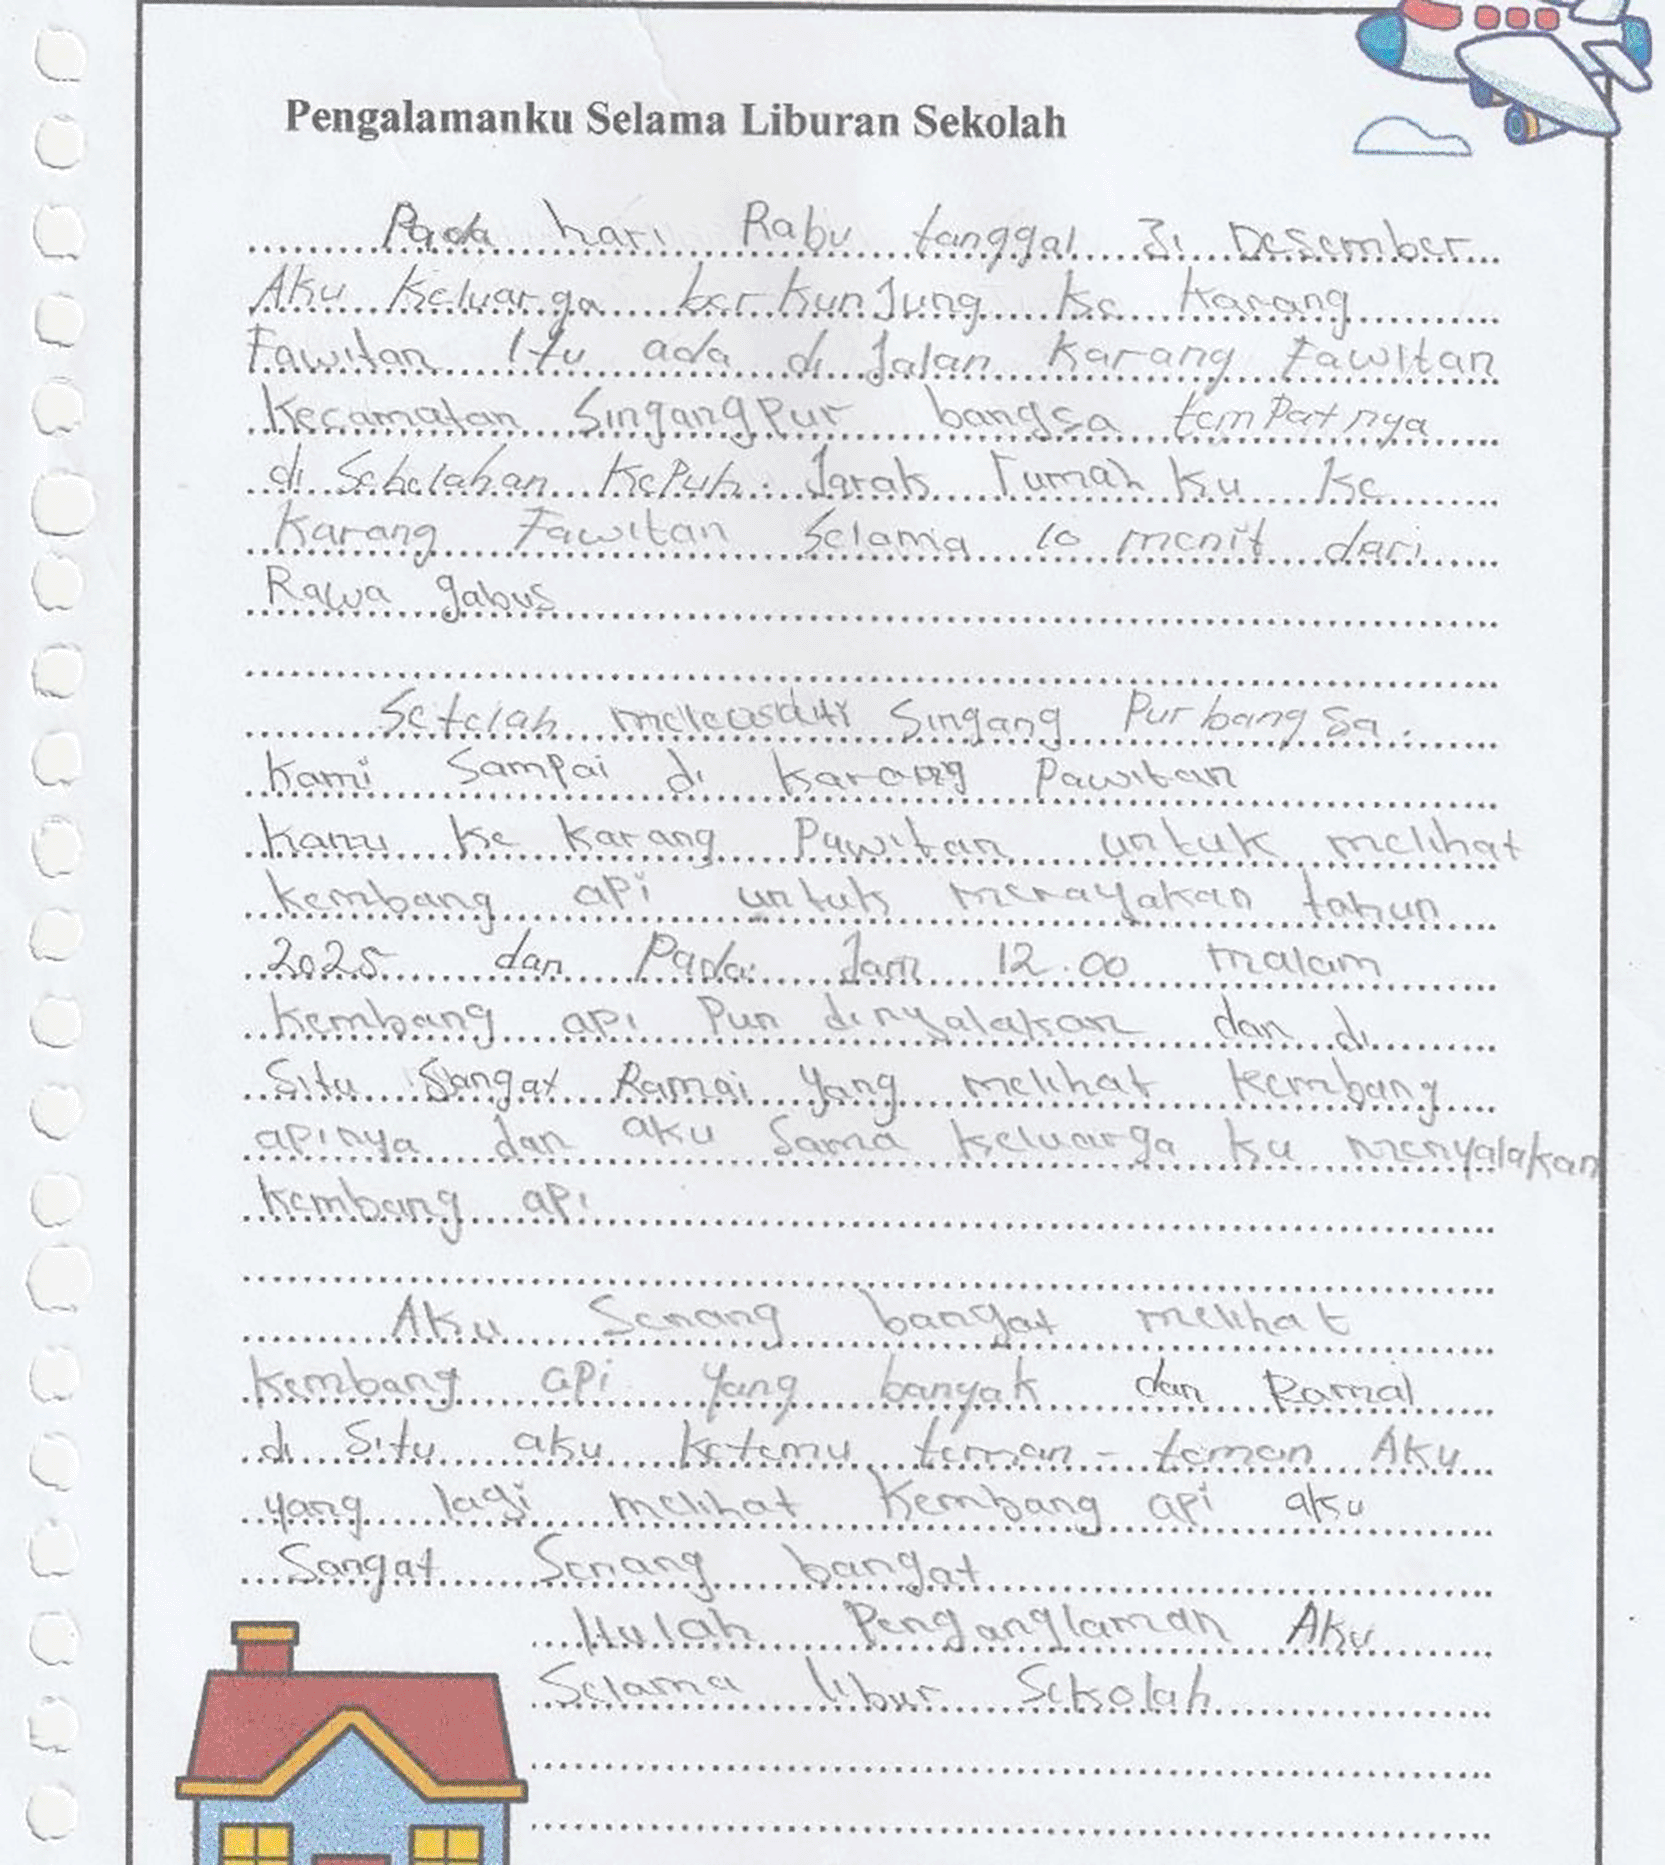 Pengalamanku Selama Liburan Sekolah
Pada hari Rabu tanggal 31 Desember
Aku keluarga berkunjung ke Karang
Fawitan Itu ada di Jalan Karang Fawitan
Kecamatan Singangpur bangsa tempatnya
di Sebelahan Kepuh. Jarak rumah ku ke
Karang Fawitan Selama 10 menit dari
Rawa gabus
Setelah Singang Purbangsa.
Kami Sampai di Karang Pawitan
Kami ke Karang Pawitan untuk melihat
kembang api untuk merayakan tahun
2025 dan Pada Jam 12.00 malam
kembang api Pun dinyalakan dan di
Situ Sangat Ramai yang melihat kembang
apinya dan aku Sama keluarga ku menyalakan
kembang api
Aku Senang bangat melihat
kembang api yang banyak dan Ramai
di Situ aku ketemu teman - teman Aku
yang lagi melihat Kembang api aku
Sangat Senang bangat
Itulah Penganglaman Aku
Selama libur Sekolah